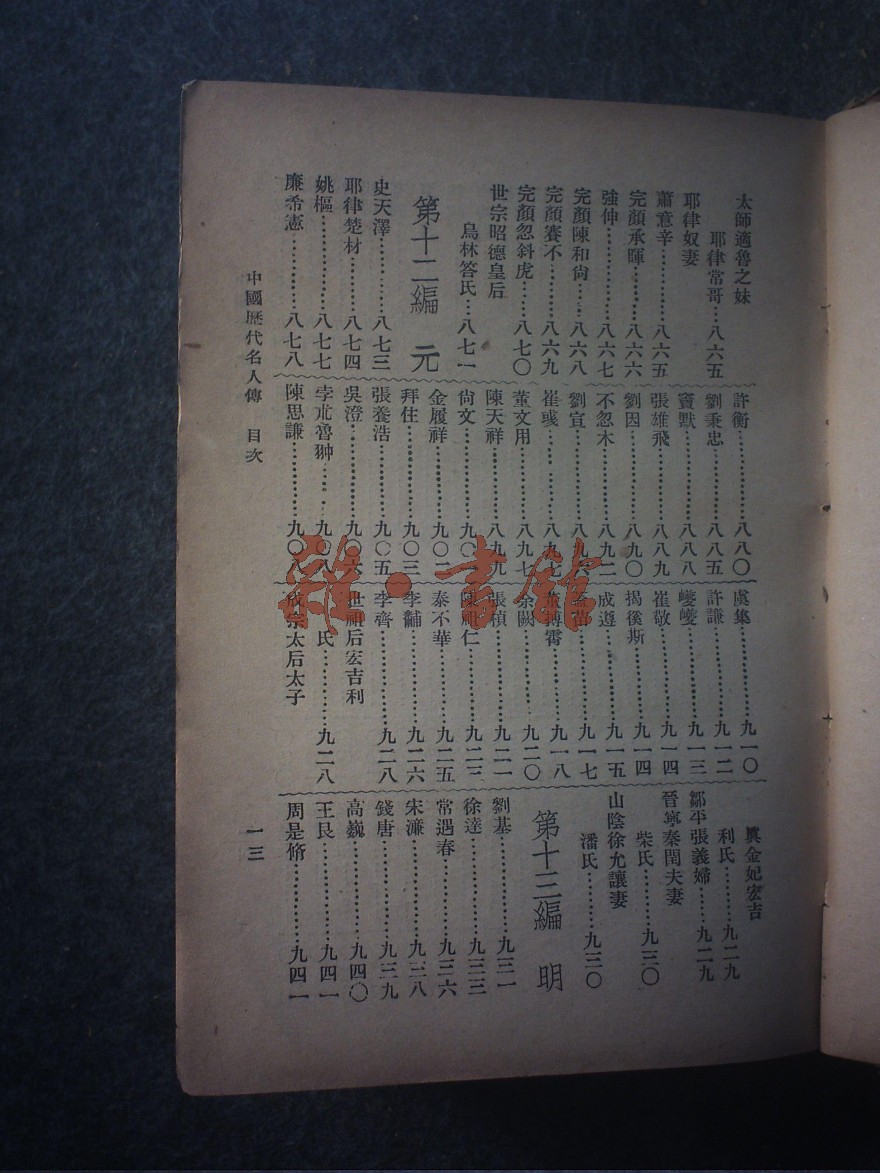 太師適魯之妹
耶律常哥…八六五
耶律奴妻
蕭意辛…………八六五
完顏承暉………八六六
強伸……………八六七
完顏陳和尙……八六八
完顏賽不………八六九
完顏忽斜虎……八七〇
世宗昭德皇后
烏林答氏…八七一
第十二編 元
史天澤…………八七三
耶律楚材………八七四
姚樞……………八七七
廉希憲…………八七八
許衡……………八八〇
劉秉忠…………八八五
竇默……………八八八
張雄飛…………八八九
劉因……………八九〇
不忽木…………八九二
劉宣……………八九六
崔彧……………八九七
董文用…………八九七
陳天祥…………八九九
尙文……………九〇
金履祥…………九〇二
拜住……………九〇三
張養浩…………九〇五
吳澄……………九〇六
孛朮魯翀………九〇八
陳思謙…………九〇八
虞集……………九一〇
許謙……………九一二
巙巙……………九一三
崔敬……………九一四
揭傒斯…………九一四
成遵……………九一五
蓋苗……………九一七
董摶霄…………九一八
余闕……………九二〇
張楨……………九二一
陳祖仁…………九二三
泰不華…………九二五
李黼……………九二六
李齊……………九二八
世祖后宏吉利
氏……………九二八
成宗太后太子
眞金妃宏吉
利氏………九二九
鄒平張義婦……九二九
晉寧秦閏夫妻
柴氏………九三〇
山陰徐允讓妻
潘氏………九三〇
第十三編 明
劉基……………九三一
徐達……………九三三
常遇春…………九三六
宋濂……………九三八
錢唐……………九三九
高巍……………九四〇
王艮……………九四一
周是脩…………九四一
中國歷代名人傳 目次
一三
雜·書館